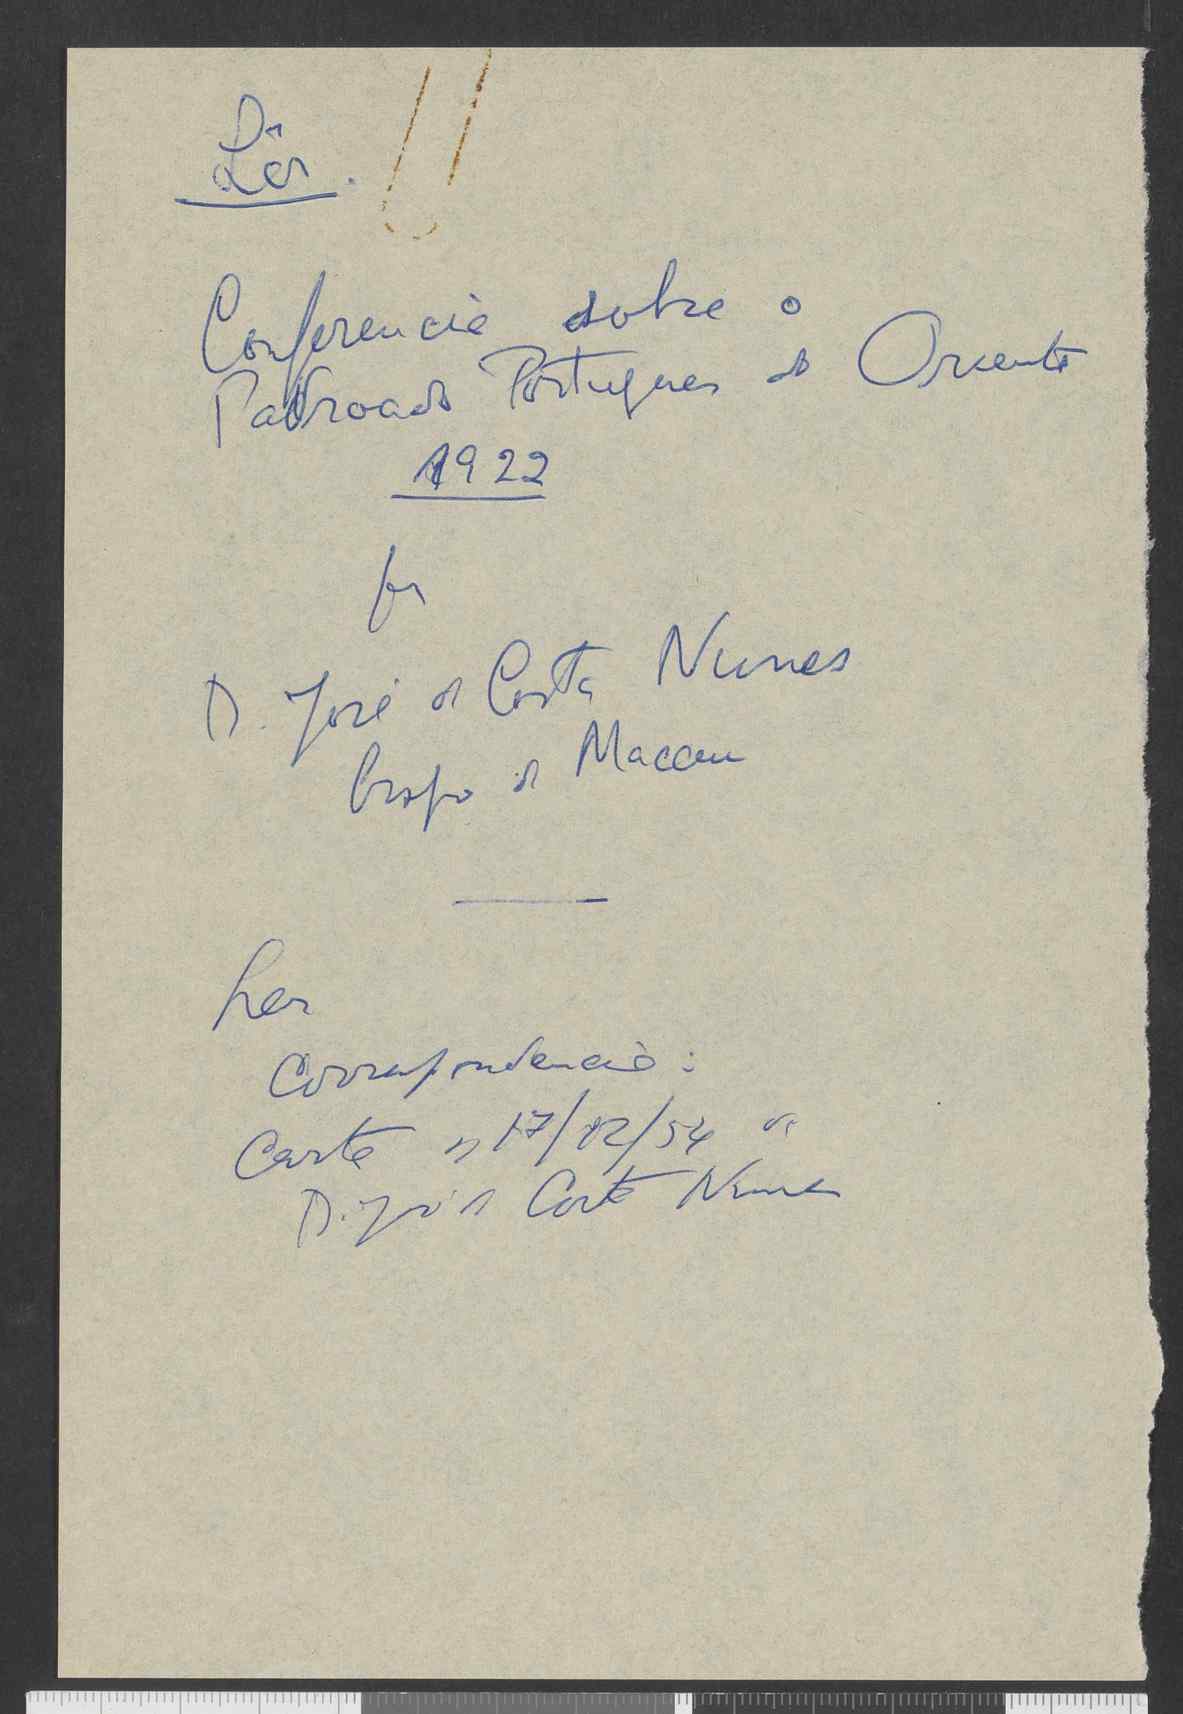 Lêr.
Conferencia sobre o
Padroado Portugues do Oriente
1922
por
D. José da Costa Nunes
bispo de Macau
Ler
Correspondencia:
Carta de 17/02/54 de
D. José da Costa Nunes